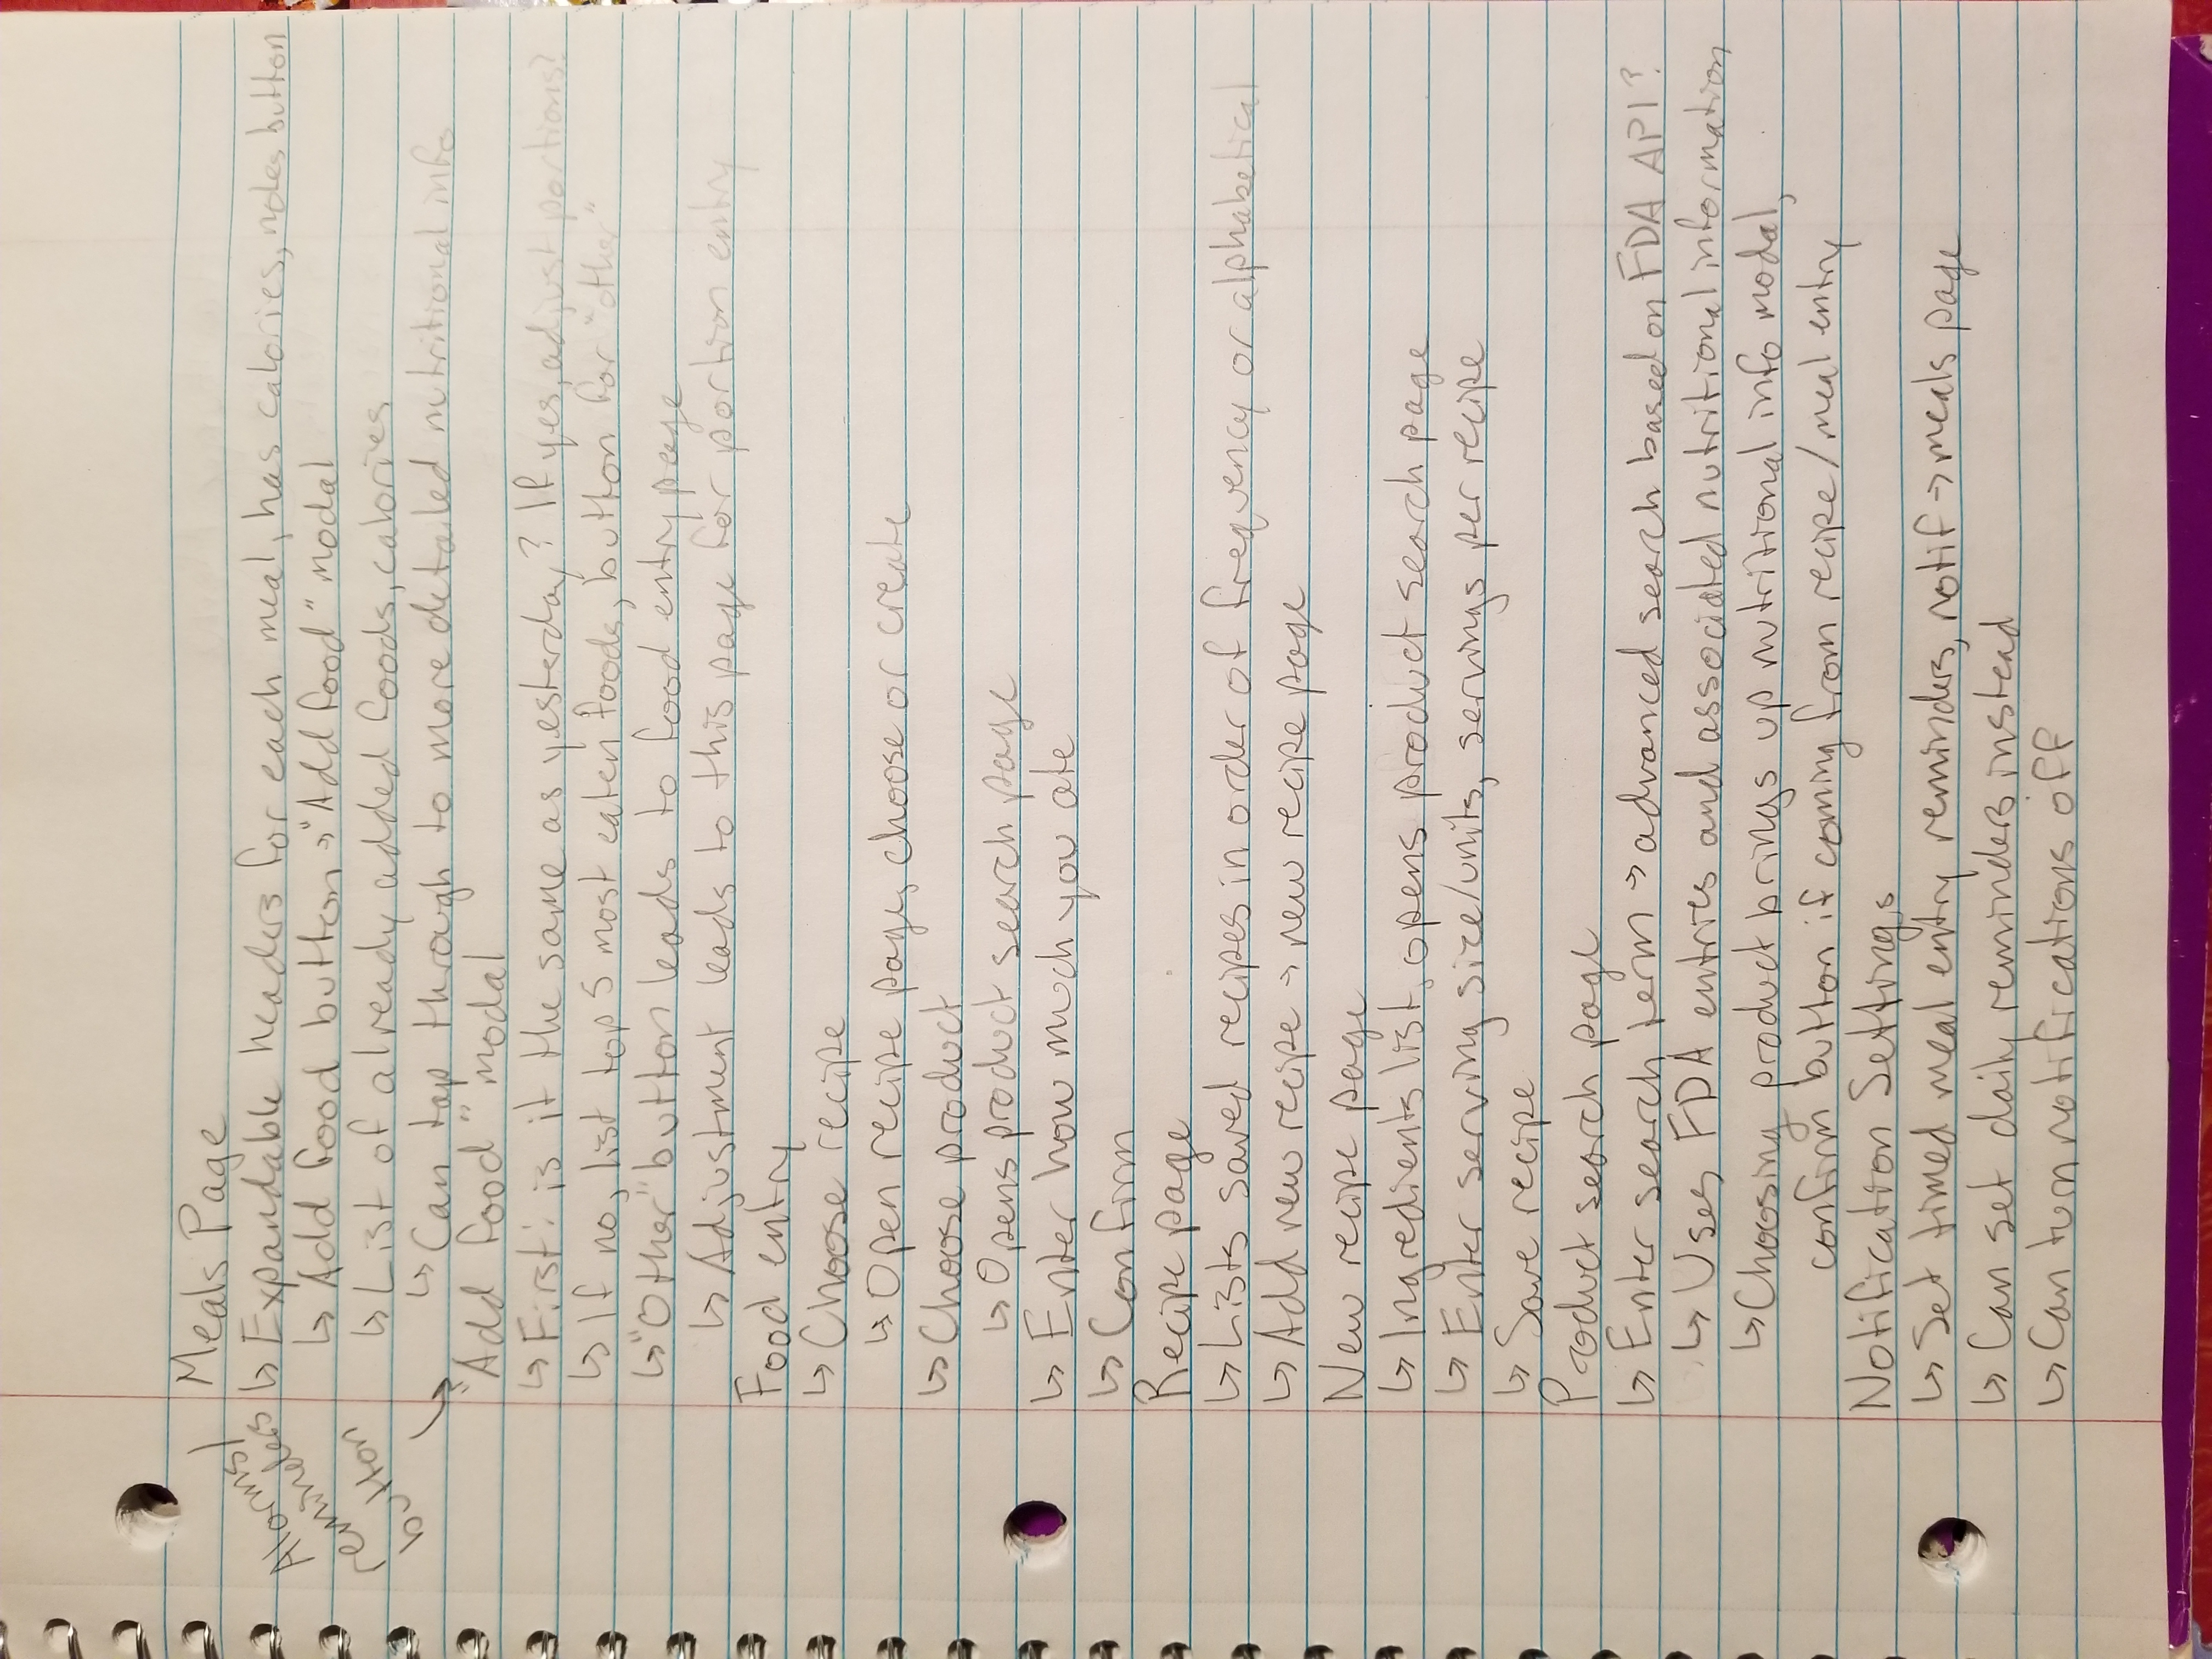 Alarms/
reminders
button
Meals Page
↳ Expandable headers for each meal, has calories, notes button
↳ Add food button → "Add food" modal
↳ List of already added foods, calories
↳ Can tap through to more detailed nutritional info
"Add food" modal
↳ First: is it the same as yesterday? If yes, adjust portions?
↳ If no, list top 5 most eaten foods, button for "other"
↳ "Other" button leads to food entry page
↳ Adjustment leads to this page for portion entry
Food entry
↳ Choose recipe
↳ Open recipe page, choose or create
↳ Choose product
↳ Opens product search page
↳ Enter how much you ate
↳ Confirm
Recipe page
↳ Lists saved recipes in order of frequency or alphabetical
↳ Add new recipe → new recipe page
New recipe page
↳ Ingredients list, opens product search page
↳ Enter serving size/units, servings per recipe
↳ Save recipe
Product search page
↳ Enter search term → advanced search based on FDA API?
↳ Uses FDA entries and associated nutritional information
↳ Choosing product brings up nutritional info modal,
confirm button if coming from recipe/meal entry
Notification Settings
↳ Set timed meal entry reminders, notif → meals page
↳ Can set daily reminders instead
↳ Can turn notifications off